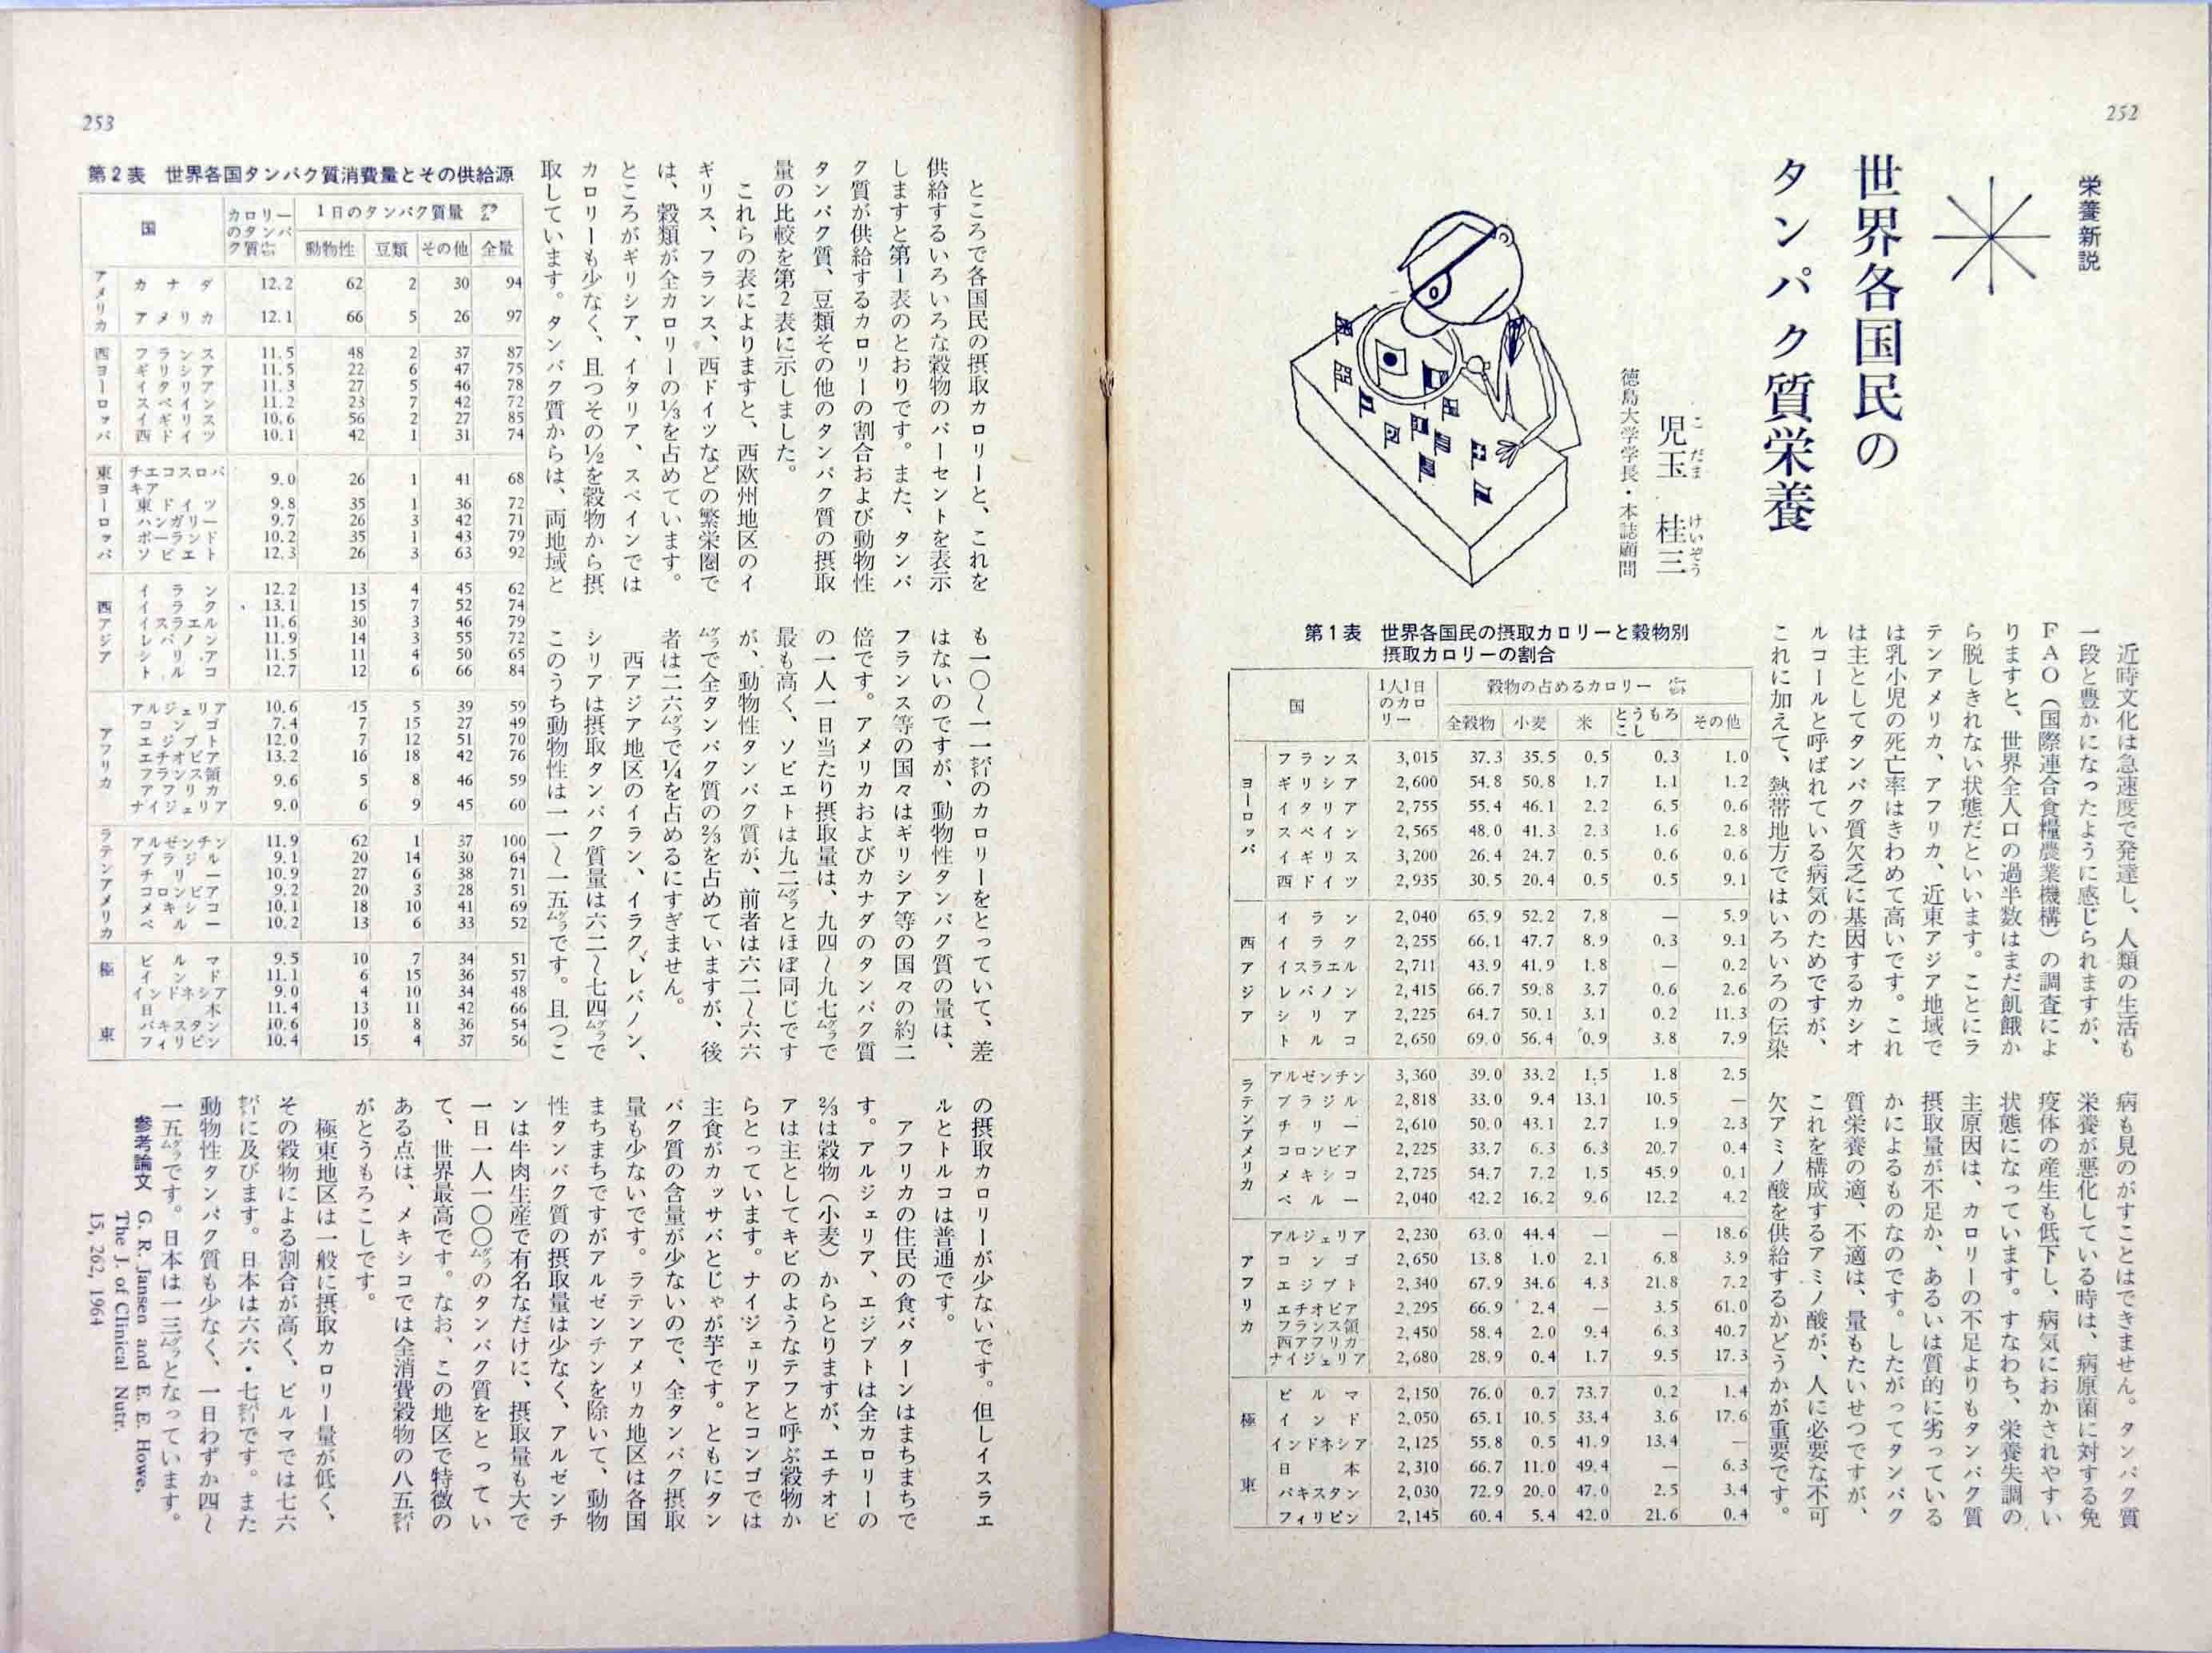 252
栄養新説
世界各国民の
タンパク質栄養
児玉 桂三
こだま けいぞう
徳島大学学長・本誌顧問
近時文化は急速度で発達し、人類の生活も
一段と豊かになったように感じられますが、
FAO（国際連合食糧農業機構）の調査によ
りますと、世界全人口の過半数はまだ飢餓か
ら脱しきれない状態だといいます。ことにラ
テンアメリカ、アフリカ、近東アジア地域で
は乳小児の死亡率はきわめて高いです。これ
は主としてタンパク質欠乏に基因するカシオ
ルコールと呼ばれている病気のためですが、
これに加えて、熱帯地方ではいろいろの伝染
病も見のがすことはできません。タンパク質
栄養が悪化している時は、病原菌に対する免
疫体の産生も低下し、病気におかされやすい
状態になっています。すなわち、栄養失調の
主原因は、カロリーの不足よりもタンパク質
摂取量が不足か、あるいは質的に劣っている
かによるものなのです。したがってタンパク
質栄養の適、不適は、量もたいせつですが、
これを構成するアミノ酸が、人に必要な不可
欠アミノ酸を供給するかどうかが重要です。
第1表 世界各国民の摂取カロリーと穀物別
摂取カロリーの割合
国 1人1日のカロリー 穀物の占めるカロリー パーセント
全穀物 小麦 米 とうもろこし その他
ヨーロッパ
フランス 3,015 37.3 35.5 0.5 0.3 1.0
ギリシア 2,600 54.8 50.8 1.7 1.1 1.2
イタリア 2,755 55.4 46.1 2.2 6.5 0.6
スペイン 2,565 48.0 41.3 2.3 1.6 2.8
イギリス 3,200 26.4 24.7 0.5 0.6 0.6
西ドイツ 2,935 30.5 20.4 0.5 0.5 9.1
西アジア
イラン 2,040 65.9 52.2 7.8 — 5.9
イラク 2,255 66.1 47.7 8.9 0.3 9.1
イスラエル 2,711 43.9 41.9 1.8 — 0.2
レバノン 2,415 66.7 59.8 3.7 0.6 2.6
シリア 2,225 64.7 50.1 3.1 0.2 11.3
トルコ 2,650 69.0 56.4 0.9 3.8 7.9
ラテンアメリカ
アルゼンチン 3,360 39.0 33.2 1.5 1.8 2.5
ブラジル 2,818 33.0 9.4 13.1 10.5 —
チリー 2,610 50.0 43.1 2.7 1.9 2.3
コロンビア 2,225 33.7 6.3 6.3 20.7 0.4
メキシコ 2,725 54.7 7.2 1.5 45.9 0.1
ペルー 2,040 42.2 16.2 9.6 12.2 4.2
アフリカ
アルジェリア 2,230 63.0 44.4 — — 18.6
コンゴ 2,650 13.8 1.0 2.1 6.8 3.9
エジプト 2,340 67.9 34.6 4.3 21.8 7.2
エチオピア 2,295 66.9 2.4 — 3.5 61.0
フランス領西アフリカ 2,450 58.4 2.0 9.4 6.3 40.7
ナイジェリア 2,680 28.9 0.4 1.7 9.5 17.3
極東
ビルマ 2,150 76.0 0.7 73.7 0.2 1.4
インド 2,050 65.1 10.5 33.4 3.6 17.6
インドネシア 2,125 55.8 0.5 41.9 13.4 —
日本 2,310 66.7 11.0 49.4 — 6.3
パキスタン 2,030 72.9 20.0 47.0 2.5 3.4
フィリピン 2,145 60.4 5.4 42.0 21.6 0.4
253
ところで各国民の摂取カロリーと、これを
供給するいろいろな穀物のパーセントを表示
しますと第1表のとおりです。また、タンパ
ク質が供給するカロリーの割合および動物性
タンパク質、豆類その他のタンパク質の摂取
量の比較を第2表に示しました。
これらの表によりますと、西欧州地区のイ
ギリス、フランス、西ドイツなどの繁栄圏で
は、穀類が全カロリーの⅓を占めています。
ところがギリシア、イタリア、スペインでは
カロリーも少なく、且つその½を穀物から摂
取しています。タンパク質からは、両地域と
も一〇〜一一パーセントのカロリーをとっていて、差
はないのですが、動物性タンパク質の量は、
フランス等の国々はギリシア等の国々の約二
倍です。アメリカおよびカナダのタンパク質
の一人一日当たり摂取量は、九四〜九七グラムで
最も高く、ソビエトは九二グラムとほぼ同じです
が、動物性タンパク質が、前者は六二〜六六
グラムで全タンパク質の⅔を占めていますが、後
者は二六グラムで¼を占めるにすぎません。
西アジア地区のイラン、イラク、レバノン、
シリアは摂取タンパク質量は六二〜七四グラムで
このうち動物性は一一〜一五グラムです。且つこ
の摂取カロリーが少ないです。但しイスラエ
ルとトルコは普通です。
アフリカの住民の食パターンはまちまちで
す。アルジェリア、エジプトは全カロリーの
⅔は穀物（小麦）からとりますが、エチオピ
アは主としてキビのようなテフと呼ぶ穀物か
らとっています。ナイジェリアとコンゴでは
主食がカッサバとじゃが芋です。ともにタン
パク質の含量が少ないので、全タンパク摂取
量も少ないです。ラテンアメリカ地区は各国
まちまちですがアルゼンチンを除いて、動物
性タンパク質の摂取量は少なく、アルゼンチ
ンは牛肉生産で有名なだけに、摂取量も大で
一日一人一〇〇グラムのタンパク質をとってい
て、世界最高です。なお、この地区で特徴の
ある点は、メキシコでは全消費穀物の八五パーセント
がとうもろこしです。
極東地区は一般に摂取カロリー量が低く、
その穀物による割合が高く、ビルマでは七六
パーセントに及びます。日本は六六・七パーセントです。また
動物性タンパク質も少なく、一日わずか四〜
一五グラムです。日本は一三グラムとなっています。
参考論文 G. R. Jansen and E. E. Howe,
The J. of Clinical Nutr.
15, 262, 1964
第2表 世界各国タンパク質消費量とその供給源
国 カロリーのタンパク質% 1日のタンパク質量 グラム
動物性 豆類 その他 全量
アメリカ
カナダ 12.2 62 2 30 94
アメリカ 12.1 66 5 26 97
西ヨーロッパ
フランス 11.5 48 2 37 87
ギリシア 11.5 22 6 47 75
イタリア 11.3 27 5 46 78
スペイン 11.2 23 7 42 72
イギリス 10.6 56 2 27 85
西ドイツ 10.1 42 1 31 74
東ヨーロッパ
チエコスロバキア 9.0 26 1 41 68
東ドイツ 9.8 35 1 36 72
ハンガリー 9.7 26 3 42 71
ポーランド 10.2 35 1 43 79
ソビエト 12.3 26 3 63 92
西アジア
イラン 12.2 13 4 45 62
イラク 13.1 15 7 52 74
イスラエル 11.6 30 3 46 79
レバノン 11.9 14 3 55 72
シリア 11.5 11 4 50 65
トルコ 12.7 12 6 66 84
アフリカ
アルジェリア 10.6 15 5 39 59
コンゴ 7.4 7 15 27 49
エジプト 12.0 7 12 51 70
エチオピア 13.2 16 18 42 76
フランス領アフリカ 9.6 5 8 46 59
ナイジェリア 9.0 6 9 45 60
ラテンアメリカ
アルゼンチン 11.9 62 1 37 100
ブラジル 9.1 20 14 30 64
チリー 10.9 27 6 38 71
コロンビア 9.2 20 3 28 51
メキシコ 10.1 18 10 41 69
ペルー 10.2 13 6 33 52
極東
ビルマ 9.5 10 7 34 51
インド 11.1 6 15 36 57
インドネシア 9.0 4 10 34 48
日本 11.4 13 11 42 66
パキスタン 10.6 10 8 36 54
フィリピン 10.4 15 4 37 56